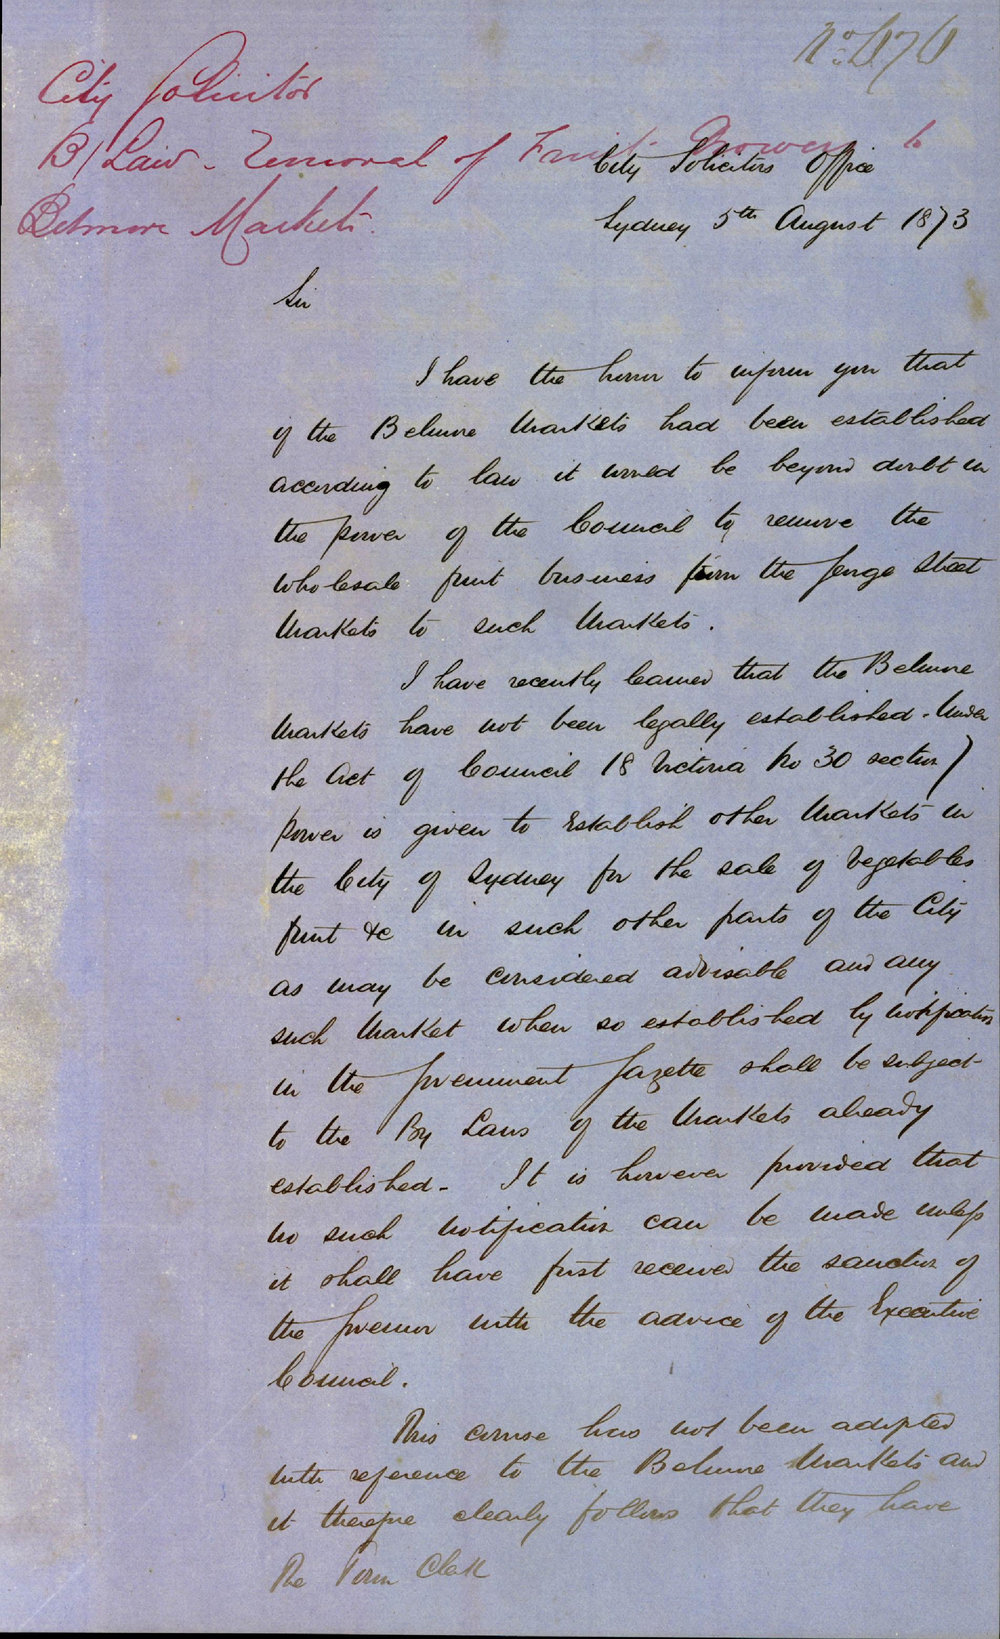 No. 676
City Solicitor
B/Law - Removal of Fruit Growers to
Belmore Markets.
City Solicitors Office
Sydney 5th August 1873
Sir
I have the honor to inform you that
if the Belmore Markets had been established
according to law it would be beyond doubt in
the power of the Council to remove the
wholesale fruit business from the George Street
Markets to such Markets.
I have recently learned that the Belmore
Markets have not been legally established. Under
the Act of Council 18 Victoria No 30 section 7
power is given to Establish other Markets in
the City of Sydney for the sale of Vegetables
fruit &c in such other parts of the City
as may be considered advisable and any
such Market when so established by Notification
in the Government Gazette shall be subject
to the By Laws of the Markets already
established - It is however provided that
no such notification can be made unless
it shall have first received the sanction of
the Governor with the advice of the Executive
Council.
This course has not been adopted
with reference to the Belmore Markets and
it therefore clearly follows that they have
The Town Clerk